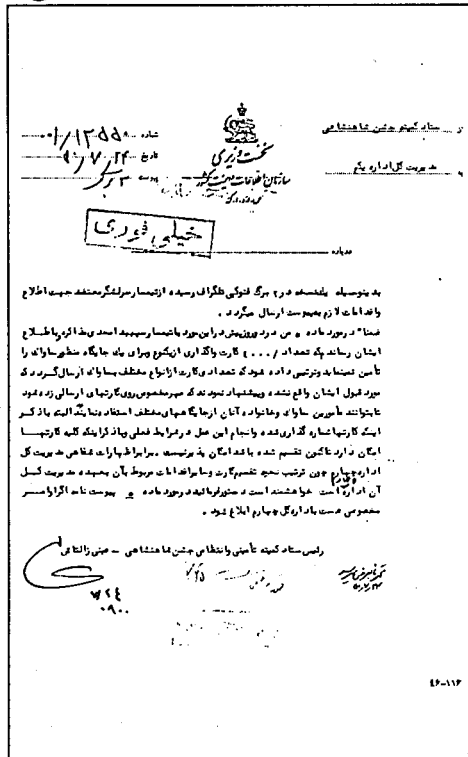 نخست وزیری
سازمان اطلاعات و امنیت کشور
از ستاد کمیته جشن شاهنشاهی
به مدیریت کل اداره یکم
شماره ۰۱/۱۲۵۵۸
تاریخ
پیوست ۲ برگ
خیلی فوری
درباره
بدینوسیله یکنسخه در ۲ برگ فتوکپی تلگراف رسیده از تیمسار سرلشگر معتضد جهت اطلاع
و اقدامات لازم به پیوست ارسال میگردد.
ضمنا" در مورد ماده من در دو روز پیش در این مورد با تیمسار سپهبد اسعدی مذاکره و با طلاع
ایشان رساند یک تعداد /۴۰۰۰ کارت واگذاری از یکنوع و برای یک جایگاه منظور ساواک را
تأمین نمینماید و ترتیبی داده شود که تعدادی کارت از انواع مختلف بساواک ارسال گردد که
مورد قبول ایشان واقع نشده و پیشنهاد نمودند که مهر مخصوص روی کارتهای ارسالی زده شود
تا بتوانند مأمورین ساواک و خانواده آنان از جایگاههای مختلف استفاده نمایند البته با ذکر
اینکه کارتها شماره گذاری شده و انجام این عمل در شرایط فعلی و با ذکر اینکه کلیه کارتهـا
امکان دارد تاکنون تقسیم شده باشد امکان پذیر نیست. برابر اظهارات شفاهی مدیریت کل
اداره چهارم چون ترتیب نحوه تقسیم کارت و سایر اقدامات مربوط بآن بعهده مدیریت کـل
آن اداره است خواهشمند است دستور فرمائید در مورد ماده پیوست نامه اگر اوامـر
مخصوصی هست باداره کل چهارم ابلاغ شود.
رئیس ستاد کمیته تأمینی و انتظامی جشن شاهنشاهی –
۷/۲۵
۷/۲۴
۰۹۰۰
۴۶-۱۱۶